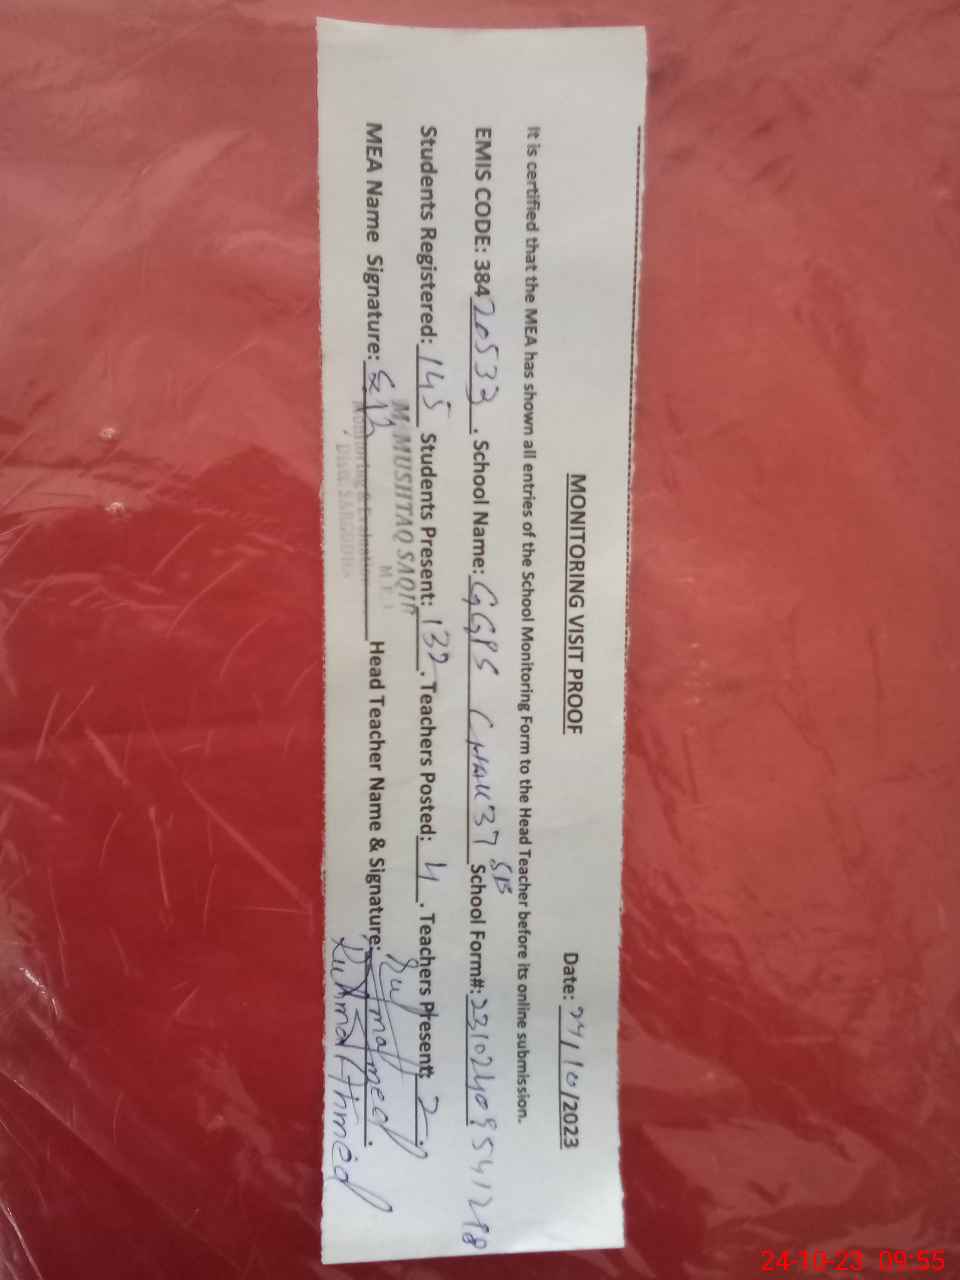 MONITORING VISIT PROOF
Date: 24/10/2023
It is certified that the MEA has shown all entries of the School Monitoring Form to the Head Teacher before its online submission.
EMIS CODE: 38420533. School Name: GGPS CHAK 37 SB School Form#: 231024095541298
Students Registered: 145 Students Present: 132. Teachers Posted: 4. Teachers Present: 2.
M. MUSHTAQ SAQIB
MEA Name Signature: Head Teacher Name & Signature: Ruhma Ahmed
Monitoring & Evaluation
24-10-23 09:55